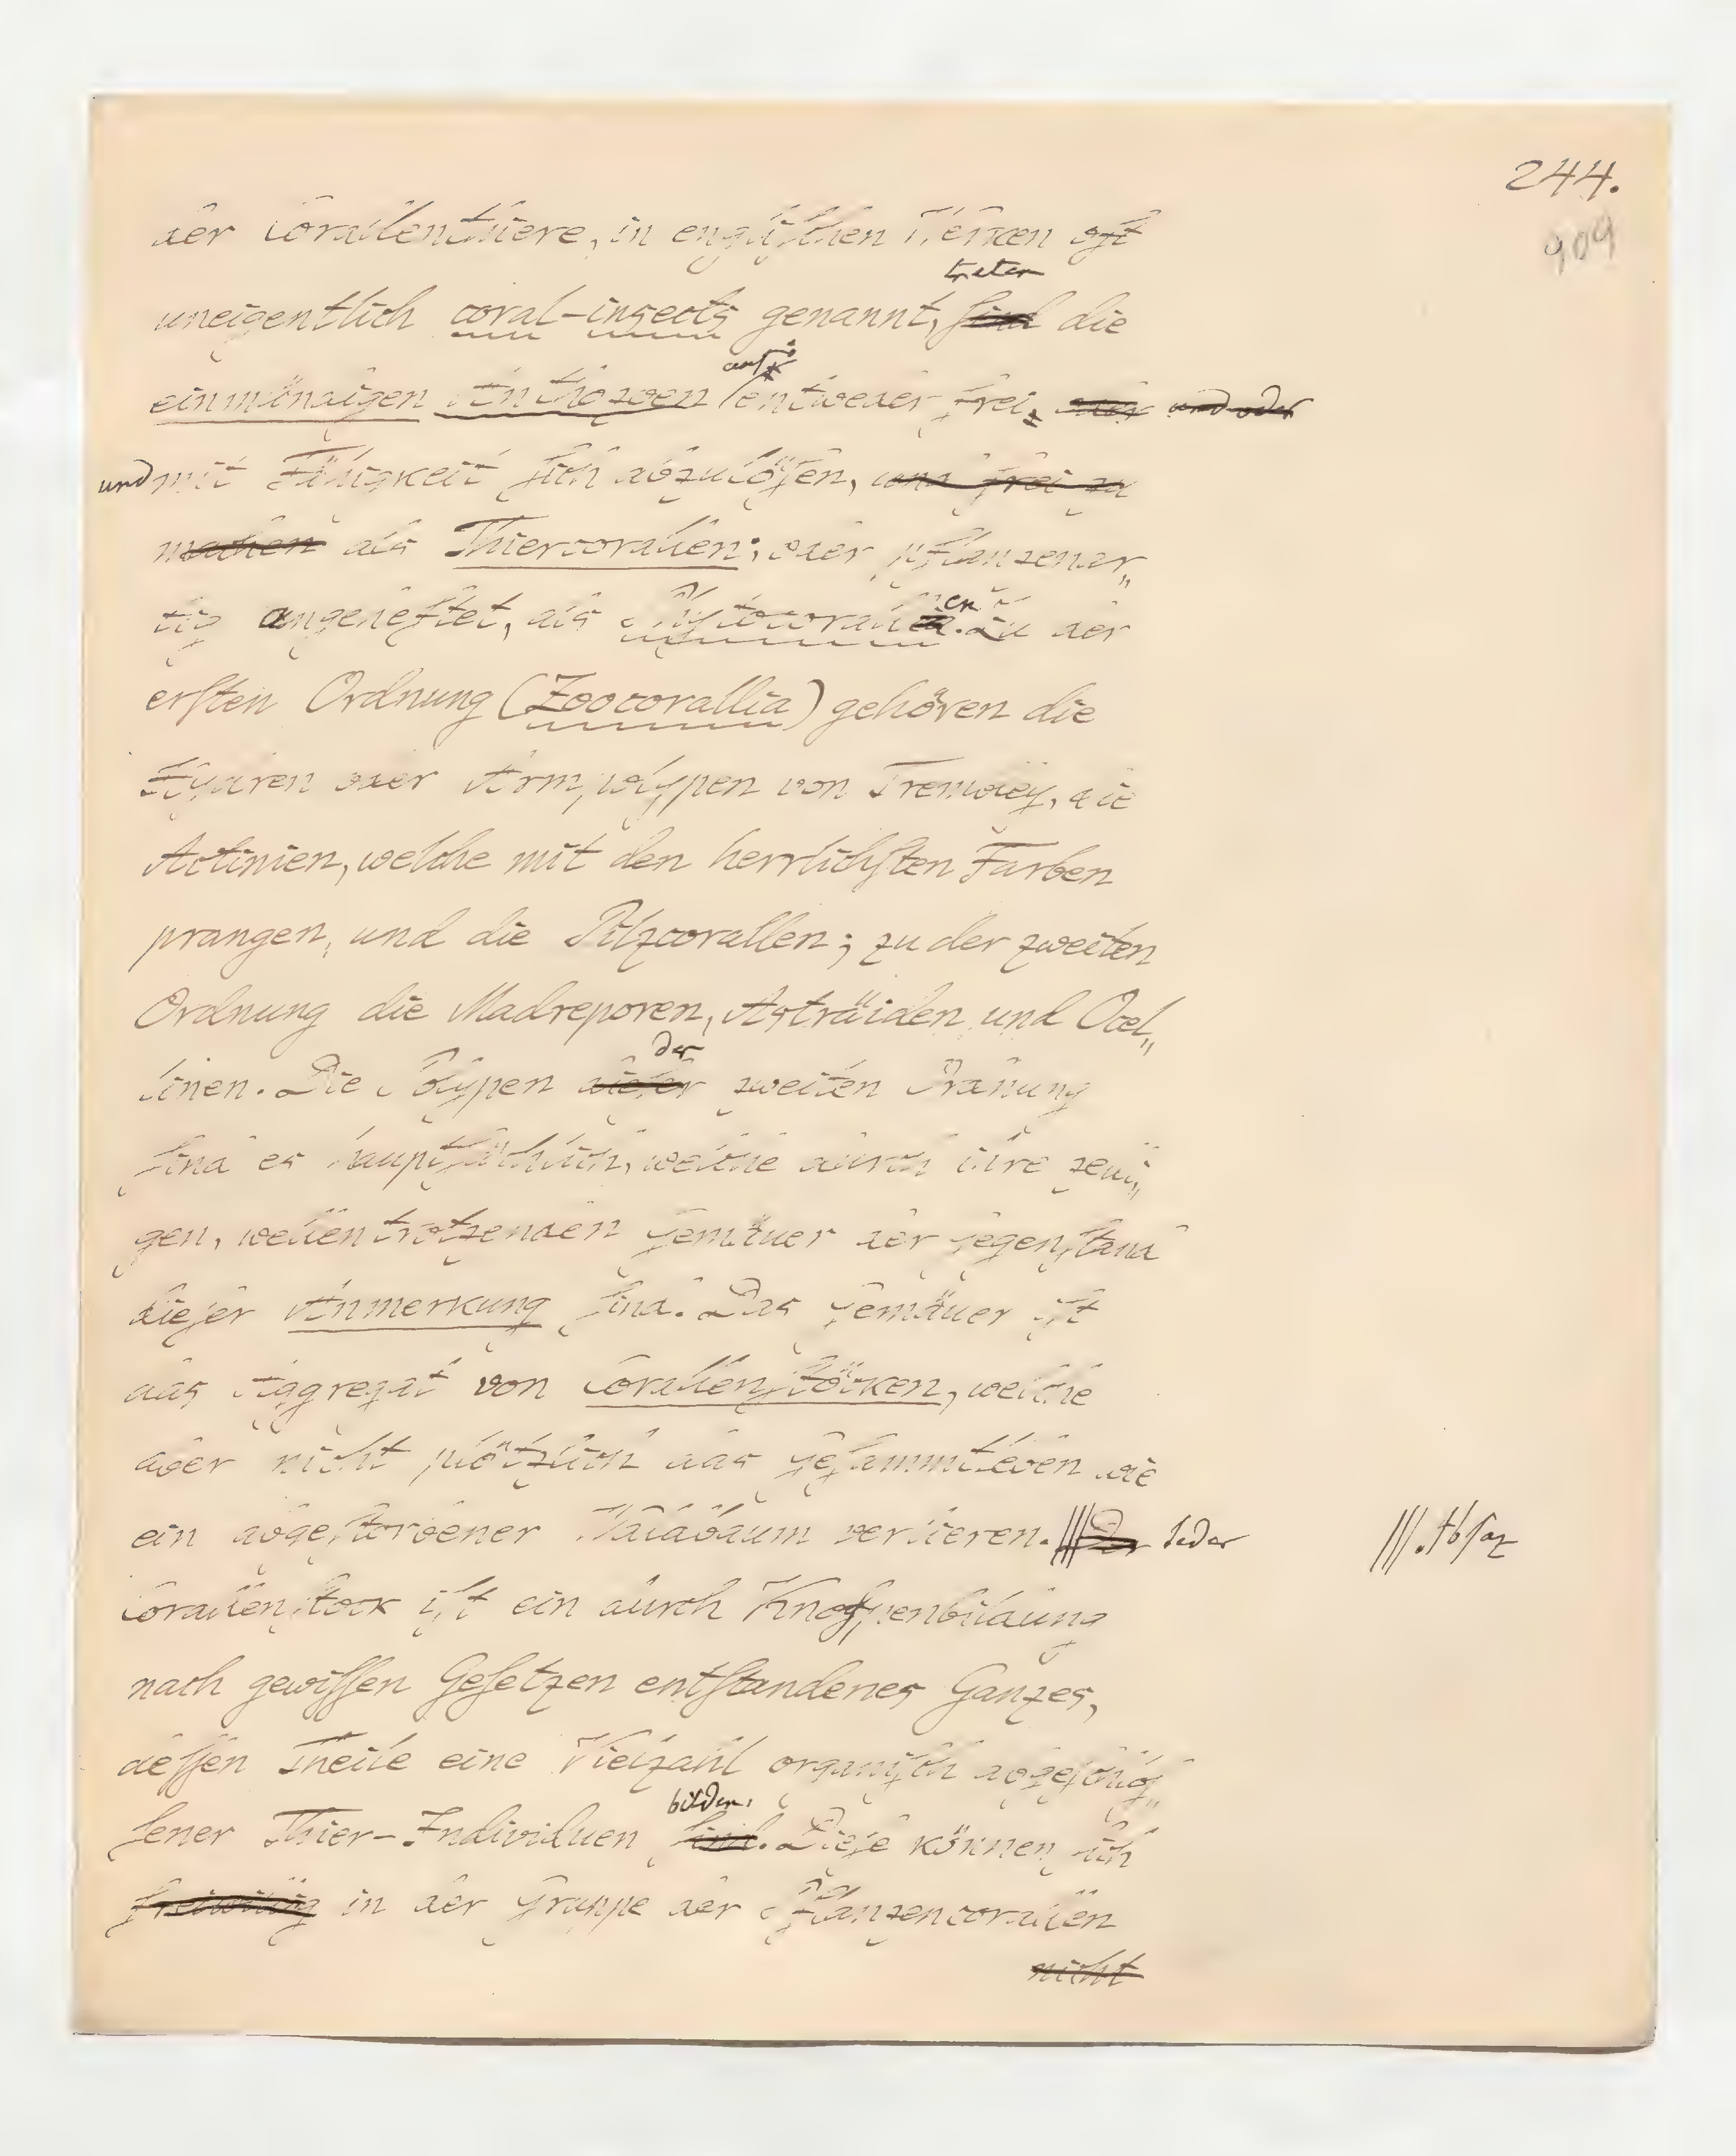 244.
909
der Corallenthiere, in englischen Werken oft
treten
uneigentlich coral-insects genannt, sind die
auf
einmündigen Anthozoen entweder frei, oder und oder
und mit Fähigkeit sich abzulösen, und frei zu
machen als Thiercorallen; oder pflanzenar„
en
tig angeheftet, als Phytocorallia. Zu der
ersten Ordnung (Zoocorallia) gehören die
Hydren oder Arm-polypen von Trembley, die
Actinien, welche mit den herrlichsten Farben
prangen, und die Pilzcorallen; zu der zweiten
Ordnung die Madreporen, Asträiden und Ocel„
der
linen. Die Polypen dieser zweiten Ordnung
sind es hauptsächlich, welche durch ihre zelli„
gen, wellentrotzenden Gemäuer der Gegenstand
dieser Anmerkung sind. Das Gemäuer ist
das Aggregat von Corallenstöcken, welche
aber nicht plötzlich das Gesammtleben wie
ein abgestorbener Waldbaum verlieren. ||| Der Jeder
|||. Absaz
Corallenstock ist ein durch Knospenbildung
nach gewissen Gesetzen entstandenes Ganzes,
dessen Theile eine Vielzahl organisch abgeschlos„
bilden.
sener Thier-Individuen sind. Diese können sich
freiwillig in der Gruppe der Pflanzencorallen
nicht